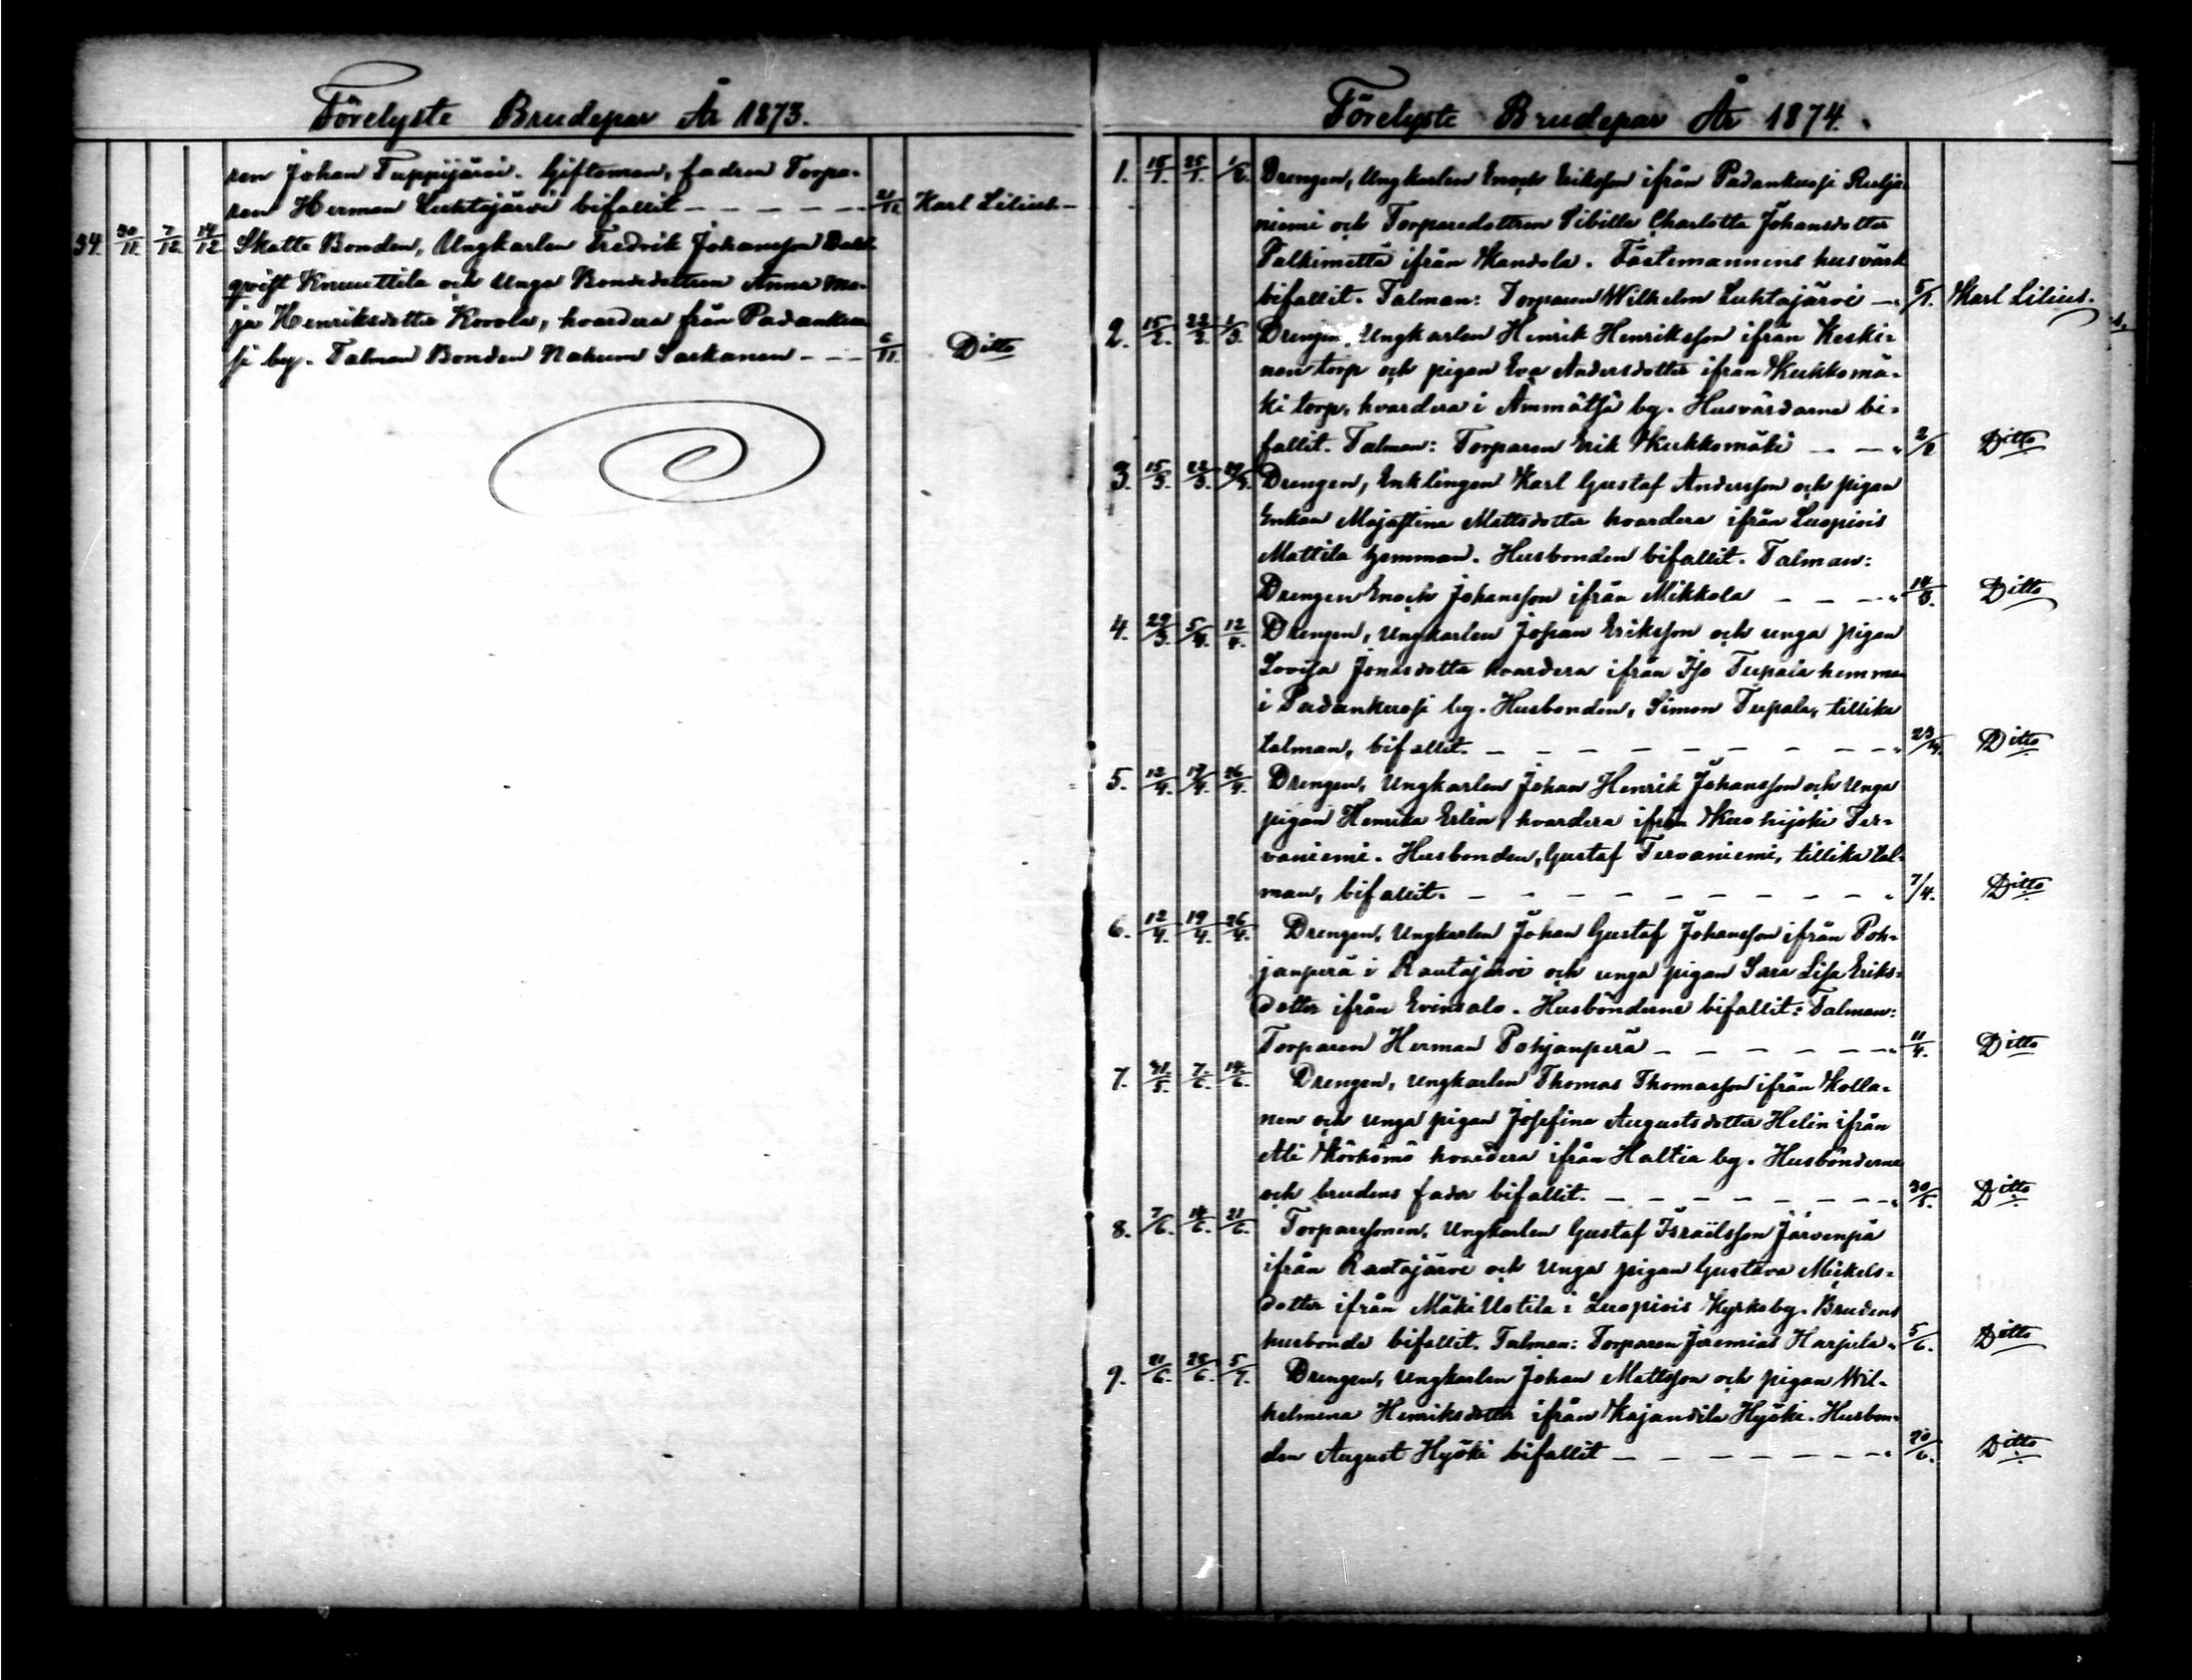 Förelyste Brudepar År 1873.
ren Johan Tuppijärvi. Giftoman, fadren Torpa-
ren Herman Luhtajärvi bifallit — — — — 21/11 Karl Lilius. —
34. 30/11. 7/12 14/12 Skatte Bonden, Ungkarlen Fredrik Johansson
qvist Knuuttila och Unga Bondedottren Anna Ma-
ja Henriksdotter Kovola, hvardera från Padankoo-
ski by. Talman Bonden Nahum Sarkanen — — 6/11. Ditto
Förelyste Brudepar År 1874.
1. 18/1. 25/1. 1/2. Drengen, Ungkarlen Enoch Eriksson ifrån Padankuosi
niemi och Torparedottren Sibilla Charlotta Johansdotter
Palkimetta ifrån Kandola. Fästemannens husvärd
bifallit. Talman: Torparen Wilhelm Luhtajärvi — 5/1. Karl Lilius.
2. 15/2. 22/2. 1/3. Drengen, Ungkarlen Henrik Henriksson ifrån Keski-
nen torp och pigan Eva Andersdotter ifrån Kukkomä-
ki torp, hvardera i Ämmätsä by. Husvärdarne bi-
fallit. Talman: Torparen Erik Kukkomäki — — 2/2 Ditto
3. 15/3. 22/3. 29/3. Drengen, Enklingen Karl Gustaf Andersson och pigan
Enkan Majastina Mattsdotter hvardera ifrån Luopiois
Mattila hemman. Husbonden bifallit. Talman:
Drengen Enoch Johansson ifrån Mikkola — — — 14/3. Ditto
4. 29/3. 5/4. 12/4. Drengen, Ungkarlen Johan Eriksson och unga pigan
Lovisa Jonasdotter hvardera ifrån Iso Tupala hemman
i Padankuosi by. Husbonden, Simon Tupala, tillika
talman, bifallit. — — — — — — — — 23/ Ditto
5. 12/4. 19/4. 26/4. Drengen, Ungkarlen Johan Henrik Johansson och Unga
pigan Henrika Erlin, hvardera ifrån Kuohijoki Ter-
vaniemi. Husbonden, Gustaf Tervaniemi, tillika tal-
man, bifallit. — — — — — — — — 7/4. Ditto
6. 12/4. 19/4. 26/4. Drengen, Ungkarlen Johan Gustaf Johansson ifrån Poh-
janperä i Rautajärvi och unga pigan Sara Lisa Eriks-
dotter ifrån Evinsalo. Husbönderne bifallit: Talman:
Torparen Herman Pohjanperä — — — — — 11/4. Ditto
7. 31/5. 7/6. 14/6. Drengen, Ungkarlen Thomas Thomasson ifrån Kolla-
nen och unga pigan Josefina Augustsdotter Helin ifrån
Ali hvardera ifrån Haltia by. Husbönderne
och brudens fader bifallit. — — — — — — 30/5. Ditto
8. 7/6. 14/6. 21/6. Torparesonen, Ungkarlen Gustaf Israëlsson Järvenpä
ifrån Rautajärvi och Unga pigan Gustava Mickels-
dotter ifrån Mäki Uotila i Luopiois Kyrkoby. Brudens
husbonde bifallit. Talman: Torparen Jeremias Harjula. 5/6. Ditto
9. 21/6. 28/6. 5/7. Drengen, Ungkarlen Johan Mattsson och pigan Wil-
helmina Henriksdotter ifrån Kajandila Hyöki. Husbon-
den August Hyöki bifallit — — — — — 20/6. Ditto